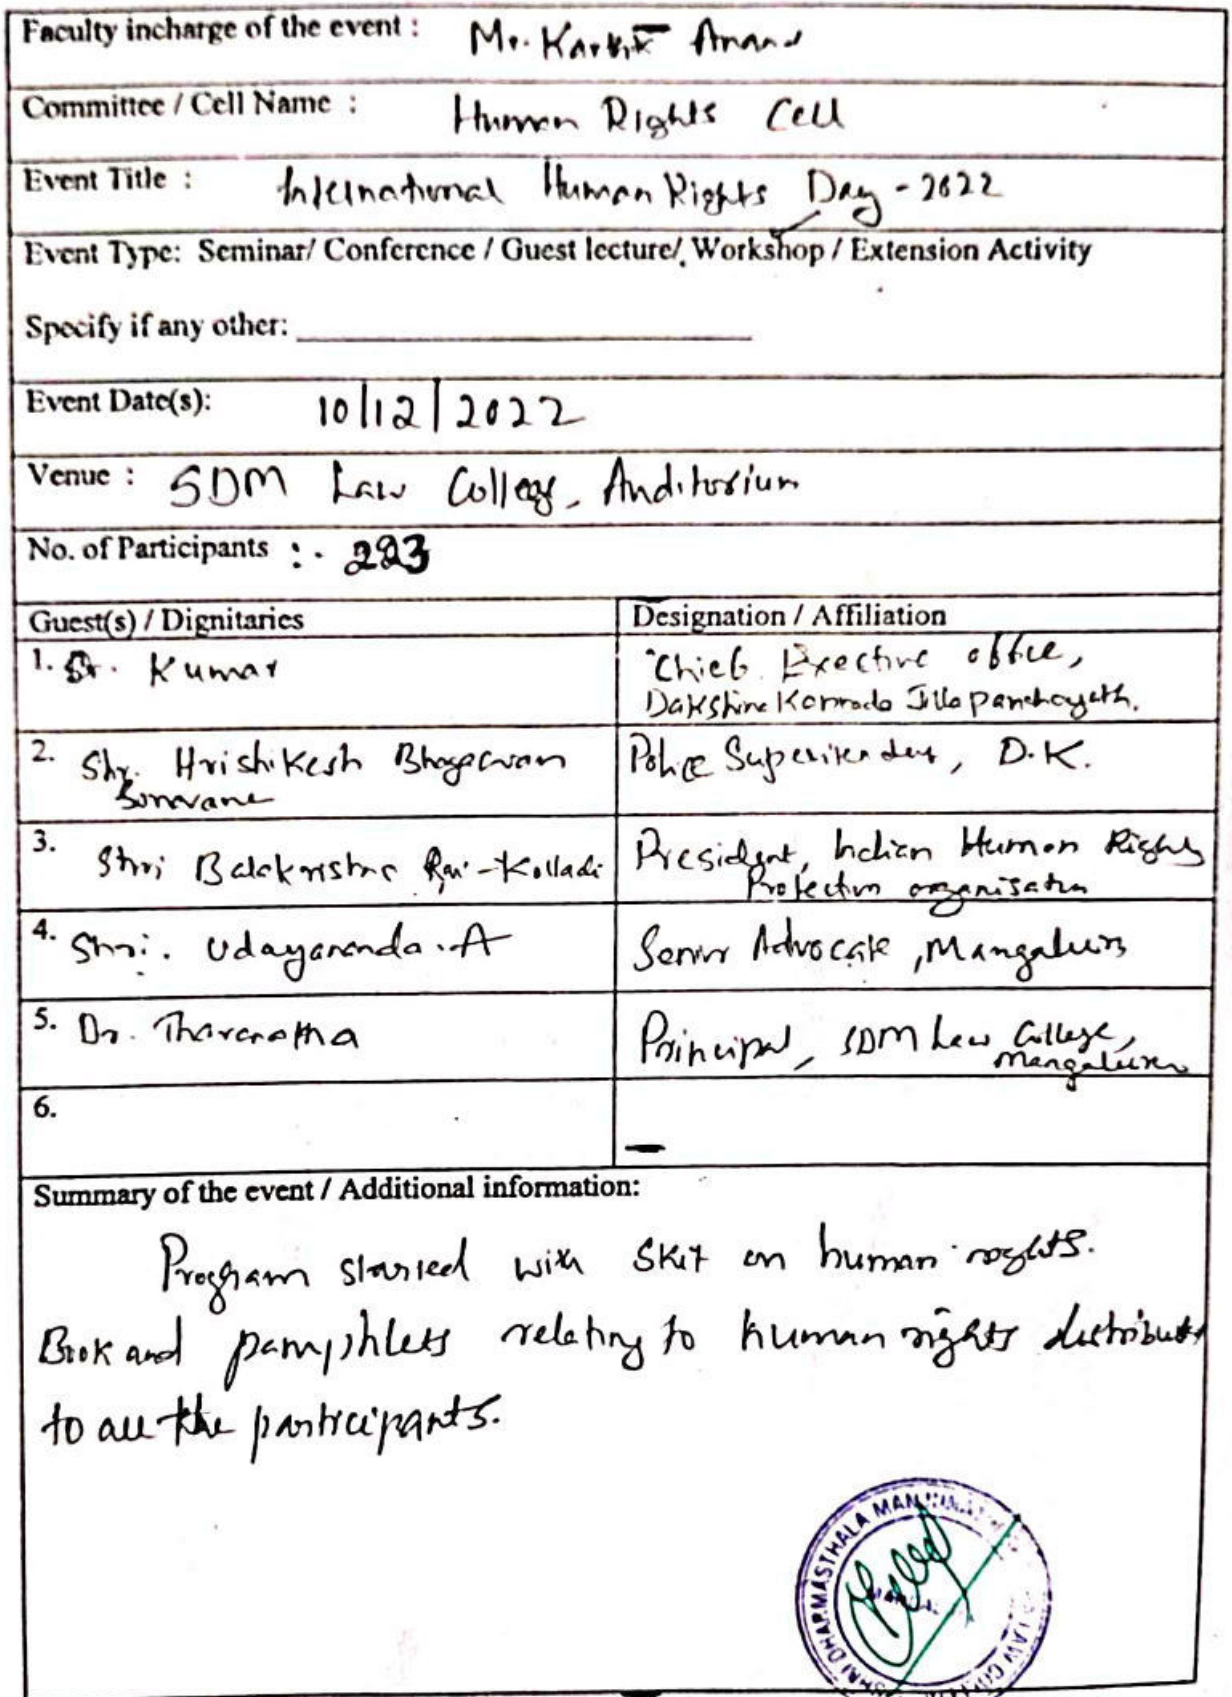 Faculty incharge of the event : Mr. Karthik Anand
Committee / Cell Name : Human Rights Cell
Event Title : International Human Rights Day - 2022
Event Type: Seminar/ Conference / Guest lecture/ Workshop / Extension Activity
Specify if any other:
Event Date(s): 10/12/2022
Venue : SDM Law College, Auditorium
No. of Participants : 223
Guest(s) / Dignitaries Designation / Affiliation
1. Dr. Kumar Chief Exective office,
Dakshina Kannada Zilla Panchayath.
2. Shri. Hrishikesh Bhagawan Police Superitendent, D.K.
Sonavane
3. Shri Balakrishna Rai - Kolladi President, Indian Human Rights
Protection organisation
4. Shri. Udayananda. A Senior Advocate, Mangaluru
5. Dr. Tharanatha Principal, SDM Law College,
Mangaluru
6. —
Summary of the event / Additional information:
Program started with skit on human rights.
Book and pamphlets relating to human rights distributed
to all the participants.
SHRI DHARMASTHALA LAW